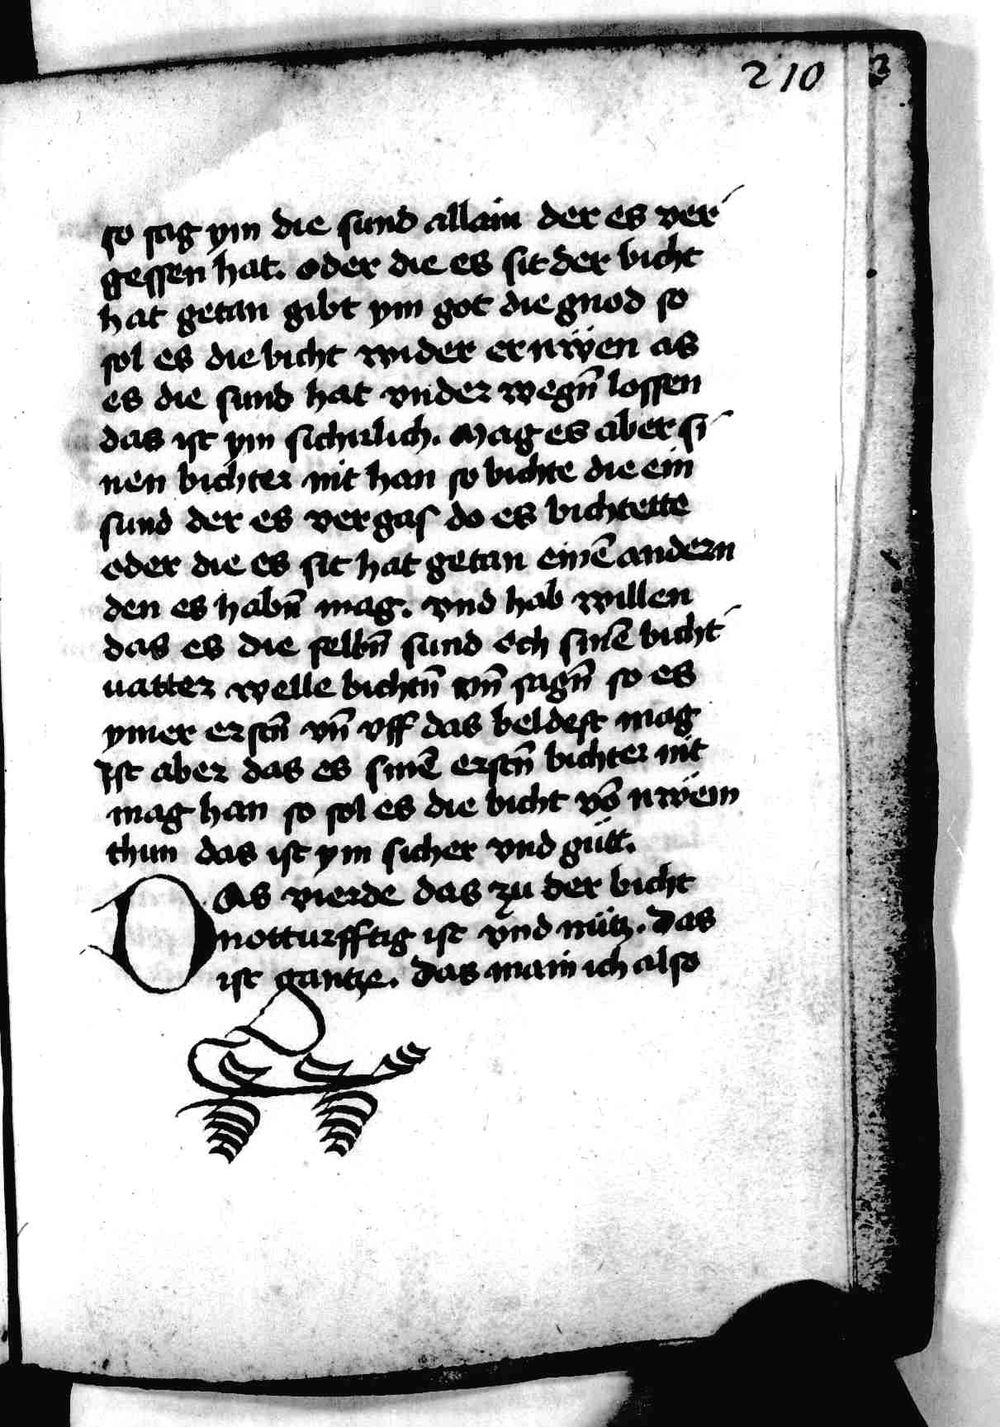 210
so sag ym die sund allain der es ver
gessen hat. oder die es sit der bicht
hat getan gibt ym got die gnod so
sol es die bicht wider ernẅen as
es die sund hat vnder wegn̄ lossen
das ist ym sichrlich. Mag es aber si
nen bichter nit han so bichte die ein
sund der es vergas do es bichtette
oder die es sit hat getan einē andern
den es habn̄ mag. vnd hab willen
das es die selbn̄ sund och sinē bicht
uatter welle bichtn̄ vn̄ sagn̄ so es
ymer erstn̄ vn̄ vff das beldest mag
Ist aber das es sinē erstn̄ bichter nit
mag han so sol es die bicht vō nẅem
thun das ist ym sicher vnd gütt.
DAs vierde das zu der bicht
notturfftig ist vnd nütz. Das
ist gantze. Das main ich also